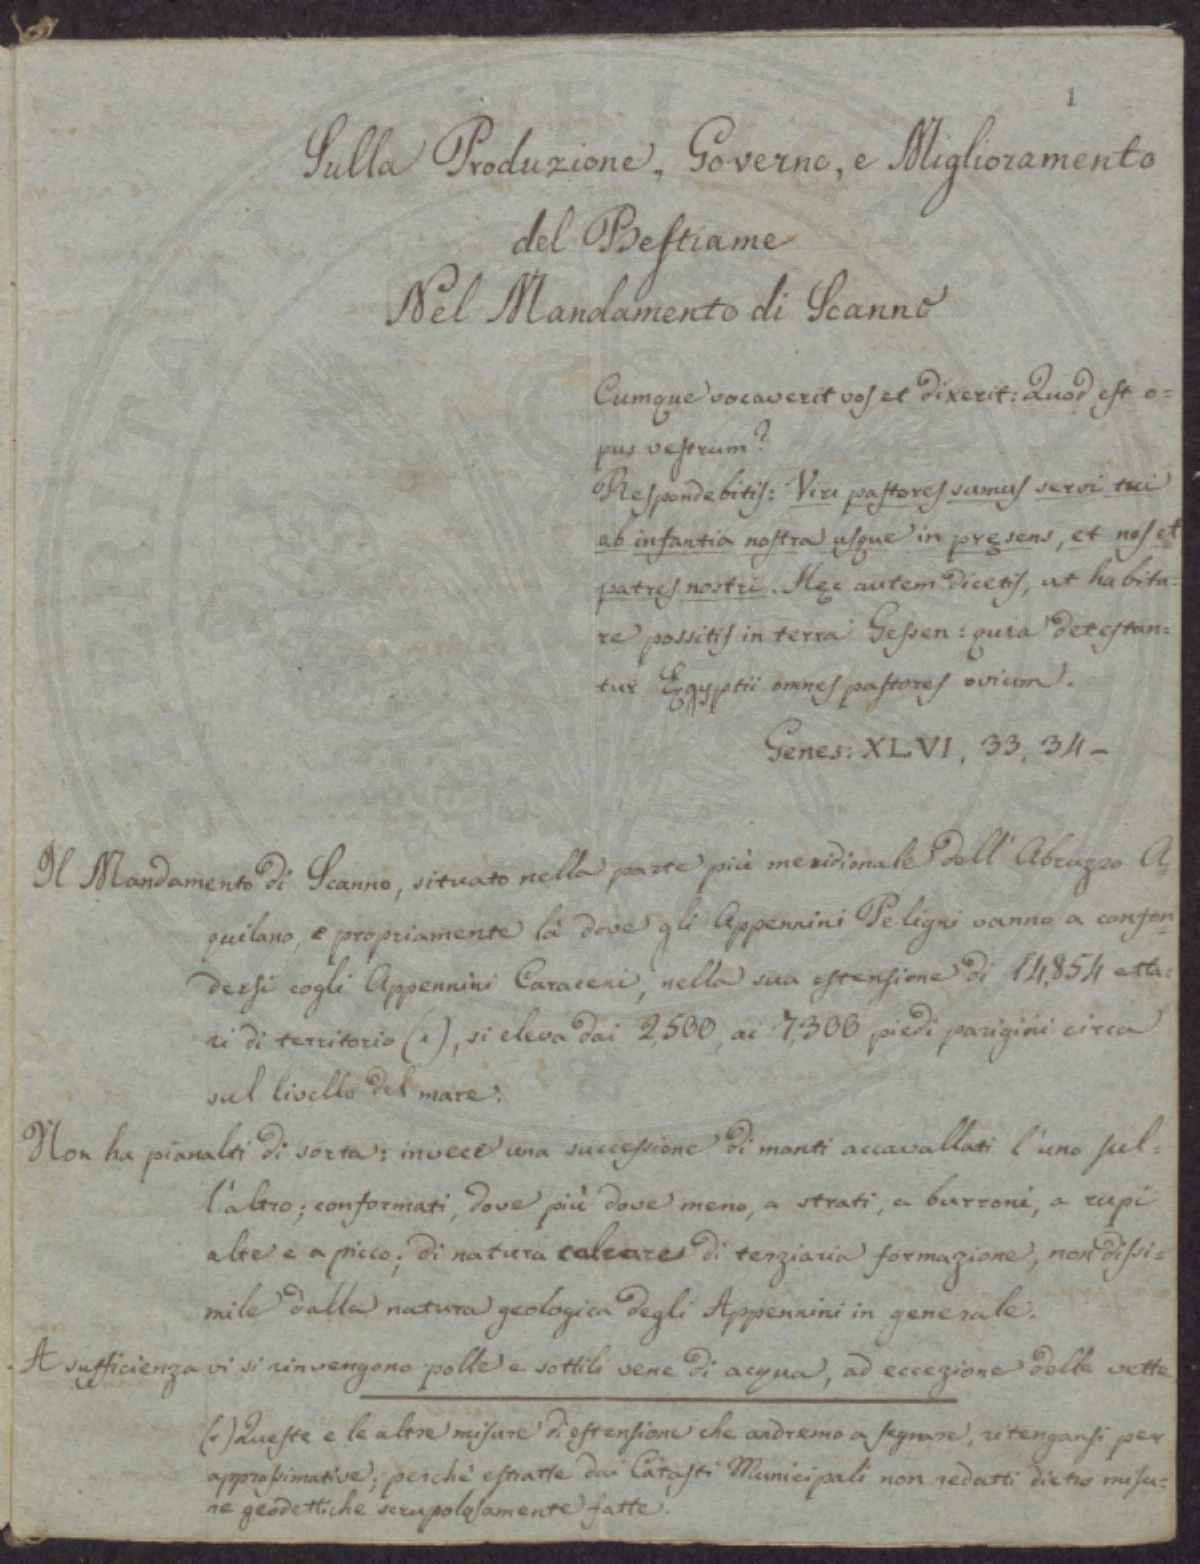 1
Sulla Produzione, Governo, e Miglioramento
del Bestiame
Nel Mandamento di Scanno
Cumque vocaverit vos et dixerit: Quod est o=
pus vestrum?
Respondebitis: Viri pastores sumus servi tui
ab infantia nostra usque in pręsens, et nos et
patres nostri. Hęc autem dicetis, ut habita=
re possitis in terra Gessen: quia detestan=
tur Egyptii omnes pastores ovium.
Genes: XLVI, 33, 34-
Il Mandamento di Scanno, situato nella parte più meridionale dell'Abruzzo A=
quilano, e propriamente là dove gli Appennini Peligni vanno a confon=
dersi cogli Appennini Caraceni, nella sua estensione di 14,854 etta=
ri di territorio (1), si eleva dai 2,500, ai 7,300 piedi parigini circa
sul livello del mare.
Non ha pianalti di sorta: invece una successione di monti accavallati l'uno sul=
l'altro; conformati, dove più dove meno, a strati, a burroni, a rupi
alte e a picco; di natura calcare di terziaria formazione, non dissi=
mile dalla natura geologica degli Appennini in generale.
A sufficienza vi si rinvengono polle e sottili vene di acqua, ad eccezione delle vette
(1) Queste e le altre misure di estensione che andremo a segnare, ritengansi per
approssimative; perchè estratte dai Catasti Municipali non redatti dietro misu=
re geodettiche scrupolosamente fatte.